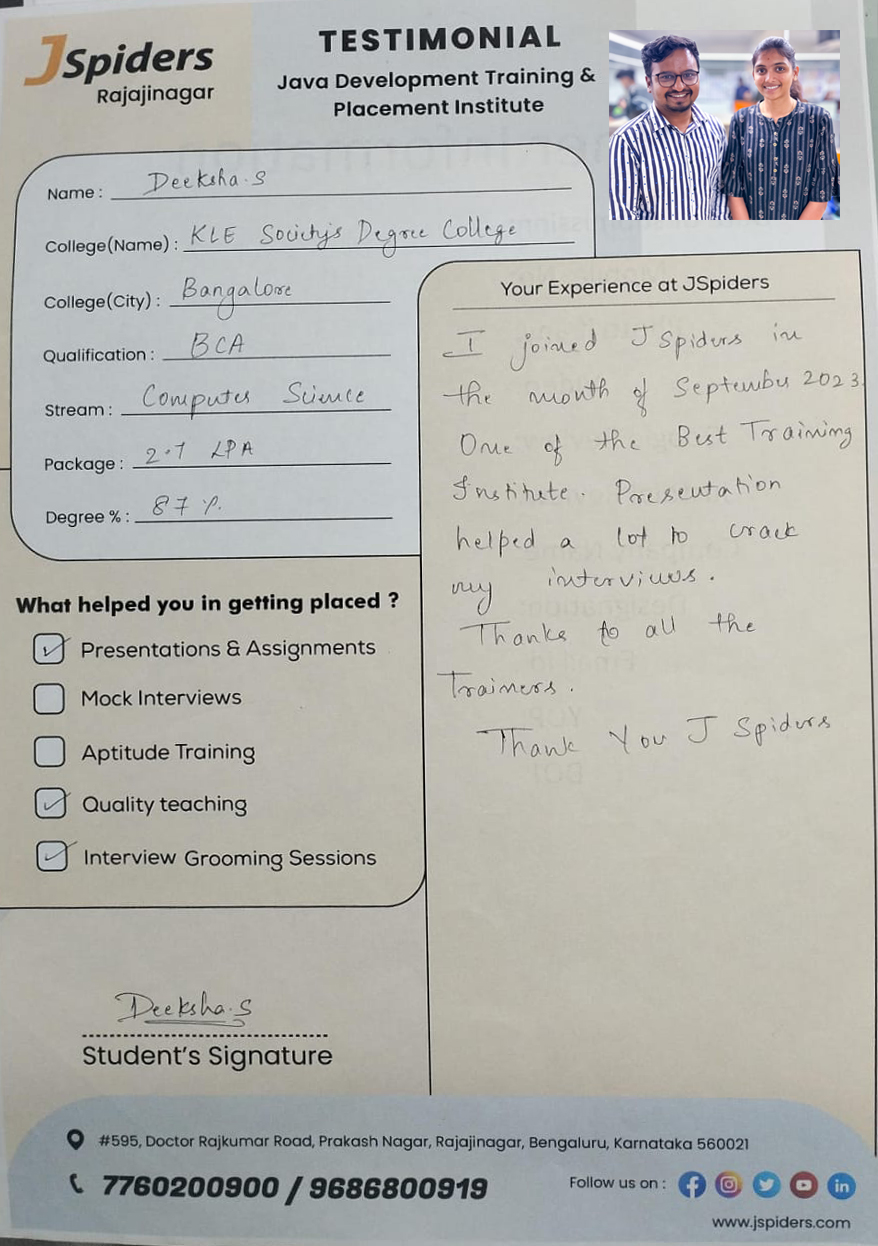 JSpiders
Rajajinagar
TESTIMONIAL
Java Development Training &
Placement Institute
Name : Deeksha.S
College(Name) : KLE Society's Degree College
College(City) : Bangalore
Qualification : BCA
Stream : Computer Science
Package : 2.7 LPA
Degree % : 87 %.
What helped you in getting placed ?
Presentations & Assignments
Mock Interviews
Aptitude Training
Quality teaching
Interview Grooming Sessions
Your Experience at JSpiders
I joined J Spiders in
the month of September 2023.
One of the Best Training
Institute. Presentation
helped a lot to crack
my interviews.
Thanks to all the
Trainers.
Thank You J Spiders
Deeksha.S
Student's Signature
#595, Doctor Rajkumar Road, Prakash Nagar, Rajajinagar, Bengaluru, Karnataka 560021
7760200900 / 9686800919
Follow us on :
www.jspiders.com